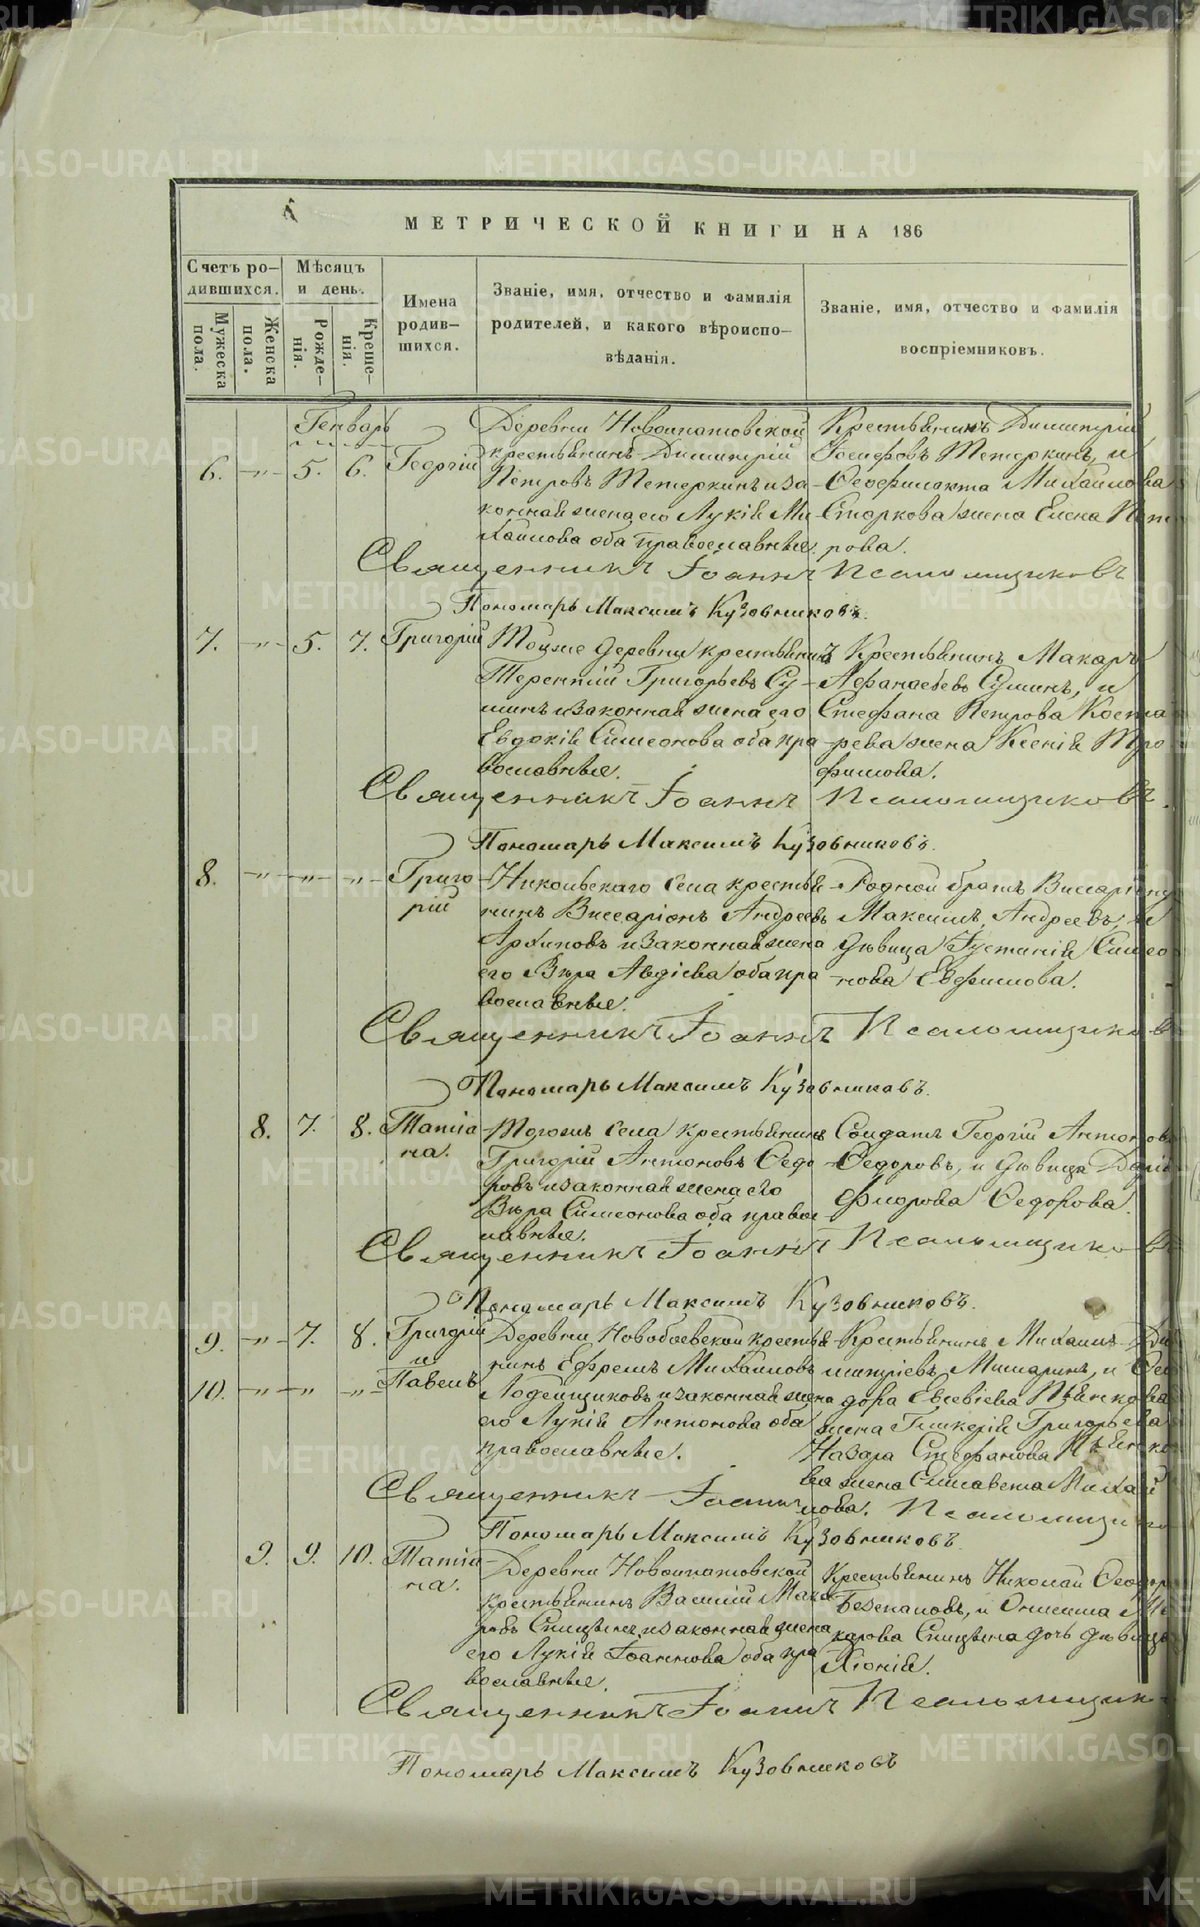 МЕТРИЧЕСКОЙ КНИГИ НА 186
Счетъ ро-
дившихся.
Мѣсяцъ
и день.
Имена
родив-
шихся.
Званіе, имя, отчество и фамилія
родителей, и какого вѣроиспо-
вѣданія.
Званіе, имя, отчество и фамилія
воспріемниковъ.
Мужеска
пола.
Женска
пола.
Рожде-
нія.
Креще-
нія.
Генварь
6. -"- 5. 6. Георгій
Деревни Новоипатовской
крестьянинъ Димитрій
Петровъ Тетеркинъ и за-
конная жена его Лукія Ми-
хаилова оба православные.
Крестьянинъ Димитрій
Іосифовъ Тетеркинъ, и
Феофилакта Михаилова
Старкова жена Елена Пет
рова.
Священникъ Іоаннъ Псаломщиковъ
Пономарь Максимъ Кузовниковъ.
7. -"- 5. 7. Григорій
Тоцже деревни крестьянинъ
Терентій Григорьевъ Су-
минъ и законная жена его
Евдокія Симеонова оба пра
вославные.
Крестьянинъ Макаръ
Афанасьевъ Суминъ, и
Стефана Петрова Коста
рева жена Ксенія Тро
фимова.
Священникъ Іоаннъ Псаломщиковъ
Пономарь Максимъ Кузовниковъ.
8. -"- -"- -"- Григо
рій
Никольскаго села крестья-
нинъ Виссаріонъ Андреевъ
Архиповъ и законная жена
его Вѣра Авдіева оба пра
вославные.
Родной братъ Виссаріону
Максимъ Андреевъ, и
дѣвица Іустинія Симео
нова Евфимова.
Священникъ Іоаннъ Псаломщиковъ
Пономарь Максимъ Кузовниковъ.
8. 7. 8. Татіа
на.
Тогожъ села крестьянинъ
Григорій Антоновъ Федо
ровъ и законная жена его
Вѣра Симеонова оба правос
лавные.
Солдатъ Георгій Антоновъ
Федоровъ, и дѣвица Дарія
Флорова Федорова.
Священникъ Іоаннъ Псаломщиковъ
Пономарь Максимъ Кузовниковъ.
9. -"- 7. 8. Григорій
и
10. -"- -"- -"- Павелъ
Деревни Новобаевской крестья
нинъ Ефремъ Михаиловъ
Лодейщиковъ и законная жена
его Лукія Антонова оба
православные.
Крестьянинъ Михаилъ Ди
митріевъ Мишаринъ, и Фео
дора Евсевіева Пѣнкова
жена Гликерія Григорьева
Назара Стефанова Пѣнко
ва жена Елисавета Михаи
лова.
Священникъ Іоаннъ Псаломщико
Пономарь Максимъ Кузовниковъ.
9. 9. 10. Татіа
на.
Деревни Новоипатовской
крестьянинъ Василій Мака
ровъ Спицынъ и законная жена
его Лукія Іоаннова оба пра
вославные.
Крестьянинъ Николай Феодор
и Онисима Ма
карова Спицына дочь дѣвица
Хіонія.
Священникъ Іоаннъ Псаломщик
Пономарь Максимъ Кузовниковъ
METRIKI.GASO-URAL.RU